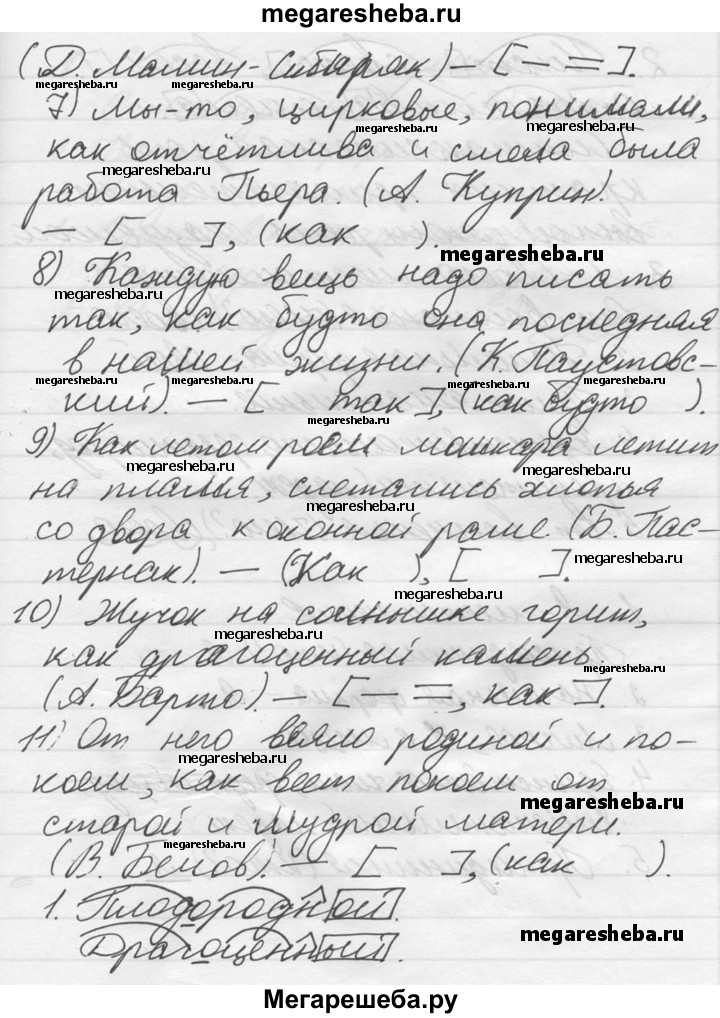 megaresheba.ru
(Д. Мамин-Сибиряк) – [– =].
megaresheba.ru megaresheba.ru megaresheba.ru
7) Мы-то, цирковые, понимали,
megaresheba.ru
как отчётлива и смела была
megaresheba.ru
работа Пьера. (А. Куприн).
– [ ], (как ).
megaresheba.ru
8) Каждую вещь надо писать
megaresheba.ru
так, как будто она последная
в нашей жизни. (К. Паустовс-
megaresheba.ru megaresheba.ru megaresheba.ru megaresheba.ru
кий). – [ так ], (как будто ).
9) Как летом роем мошкара летит
megaresheba.ru
на пламя, слетались хлопья
со двора к оконной раме. (Б. Пас-
тернак). – (Как ), [ ].
megaresheba.ru
10) Жучок на солнышке горит,
megaresheba.ru
как драгоценный камень.
(А. Барто). – [– =, как ].
11) От него веяло родиной и по-
megaresheba.ru
коем, как веет покоем от
megaresheba.ru
старой и мудрой матери.
megaresheba.ru
(В. Белов). – [ ], (как ).
1. Плодородный.
megaresheba.ru
Драгоценный.
Мегарешеба.ру